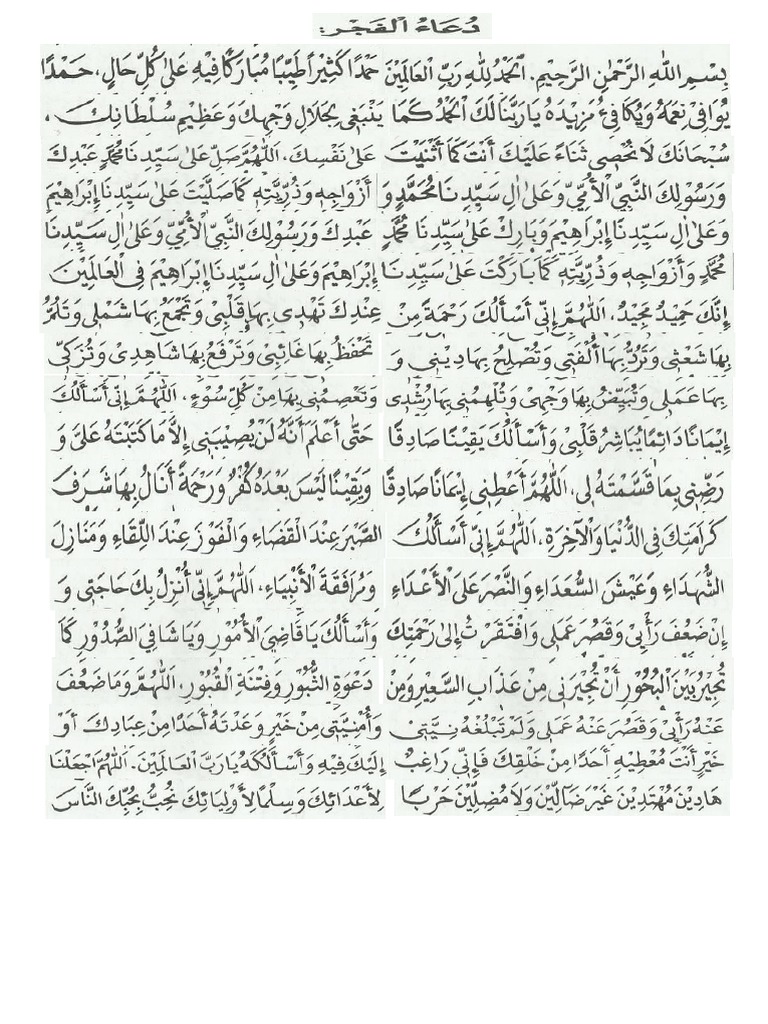 دُعَاءُ الْفَجْرِ:
بِسْمِ اللهِ الرَّحْمٰنِ الرَّحِيْمِ. اَلْحَمْدُ لِلهِ رَبِّ الْعَالَمِيْنَ حَمْدًا كَثِيْرًا طَيِّبًا مُبَارَكًا فِيْهِ عَلىٰ كُلِّ حَالٍ، حَمْدًا
يُوَافِىْ نِعَمَهُ وَيُكَافِئُ مَزِيْدَهُ يَارَبَّنَا لَكَ الْحَمْدُ كَمَا يَنْبَغِى لِجَلَالِ وَجْهِكَ وَعَظِيْمِ سُلْطَانِكَ،
سُبْحَانَكَ لَا نُحْصِى ثَنَاءً عَلَيْكَ أَنْتَ كَمَا أَثْنَيْتَ عَلىٰ نَفْسِكَ، اَللّٰهُمَّ صَلِّ عَلىٰ سَيِّدِنَا مُحَمَّدٍ عَبْدِكَ
وَرَسُوْلِكَ النَّبِيِّ الْأُمِّيِّ وَعَلىٰ اٰلِ سَيِّدِنَا مُحَمَّدٍ وَ أَزْوَاجِهِ وَذُرِّيَّتِهِ كَمَا صَلَّيْتَ عَلىٰ سَيِّدِنَا إِبْرَاهِيْمَ
وَعَلىٰ اٰلِ سَيِّدِنَا إِبْرَاهِيْمَ وَبَارِكْ عَلىٰ سَيِّدِنَا مُحَمَّدٍ عَبْدِكَ وَرَسُوْلِكَ النَّبِيِّ الْأُمِّيِّ وَعَلىٰ اٰلِ سَيِّدِنَا
مُحَمَّدٍ وَأَزْوَاجِهِ وَذُرِّيَّتِهِ كَمَا بَارَكْتَ عَلىٰ سَيِّدِنَا إِبْرَاهِيْمَ وَعَلىٰ اٰلِ سَيِّدِنَا إِبْرَاهِيْمَ فِى الْعَالَمِيْنَ
إِنَّكَ حَمِيْدٌ مَجِيْدٌ، اَللّٰهُمَّ إِنِّى أَسْأَلُكَ رَحْمَةً مِنْ عِنْدِكَ تَهْدِى بِهَا قَلْبِىْ وَتَجْمَعُ بِهَا شَمْلِى وَتَلُمُّ
بِهَا شَعْثِى وَتَرُدُّ بِهَا أُلْفَتِى وَتُصْلِحُ بِهَا دِيْنِى وَ تَحْفَظُ بِهَا غَائِبِىْ وَتَرْفَعُ بِهَا شَاهِدِىْ وَتُزَكِّىْ
بِهَا عَمَلِى وَتُبَيِّضُ بِهَا وَجْهِىْ وَتُلْهِمُنِى بِهَا رُشْدِى وَتَعْصِمُنِى بِهَا مِنْ كُلِّ سُوْءٍ، اَللّٰهُمَّ إِنِّى أَسْأَلُكَ
إِيْمَانًا دَائِمًا يُبَاشِرُ قَلْبِىْ وَأَسْأَلُكَ يَقِيْنًا صَادِقًا حَتّٰى أَعْلَمَ أَنَّهُ لَنْ يُصِيْبَنِى إِلَّا مَا كَتَبْتَهُ عَلَىَّ وَ
رَضِّنِى بِمَا قَسَمْتَهُ لِى، اَللّٰهُمَّ أَعْطِنِى إِيْمَانًا صَادِقًا وَيَقِيْنًا لَيْسَ بَعْدَهُ كُفْرٌ وَرَحْمَةً أَنَالُ بِهَا شَرَفَ
كَرَامَتِكَ فِى الدُّنْيَا وَالْآخِرَةِ، اَللّٰهُمَّ إِنِّى أَسْأَلُكَ الصَّبْرَ عِنْدَ الْقَضَاءِ وَالْفَوْزَ عِنْدَ اللِّقَاءِ وَمَنَازِلَ
الشُّهَدَاءِ وَعَيْشَ السُّعَدَاءِ وَالنَّصْرَ عَلَى الْأَعْدَاءِ وَمُرَافَقَةَ الْأَنْبِيَاءِ، اَللّٰهُمَّ إِنِّى أُنْزِلُ بِكَ حَاجَتِى وَ
إِنْ ضَعُفَ رَأْيِى وَقَصُرَ عَمَلِى وَافْتَقَرْتُ إِلىٰ رَحْمَتِكَ وَأَسْأَلُكَ يَا قَاضِيَ الْأُمُوْرِ وَيَا شَافِيَ الصُّدُوْرِ كَمَا
تُجِيْرُ بَيْنَ الْبُحُوْرِ أَنْ تُجِيْرَنِى مِنْ عَذَابِ السَّعِيْرِ وَمِنْ دَعْوَةِ الثُّبُوْرِ وَفِتْنَةِ الْقُبُوْرِ، اَللّٰهُمَّ وَمَا ضَعُفَ
عَنْهُ رَأْيِى وَقَصُرَ عَنْهُ عَمَلِى وَلَمْ تَبْلُغْهُ نِيَّتِىْ وَأُمْنِيَّتِى مِنْ خَيْرٍ وَعَدْتَهُ أَحَدًا مِنْ عِبَادِكَ أَوْ
خَيْرٍ أَنْتَ مُعْطِيْهِ أَحَدًا مِنْ خَلْقِكَ فَإِنِّى رَاغِبٌ إِلَيْكَ فِيْهِ وَأَسْأَلُكَهُ يَارَبَّ الْعَالَمِيْنَ. اَللّٰهُمَّ اجْعَلْنَا
هَادِيْنَ مُهْتَدِيْنَ غَيْرَ ضَالِّيْنَ وَلَا مُضِلِّيْنَ حَرْبًا لِأَعْدَائِكَ وَسِلْمًا لِأَوْلِيَائِكَ نُحِبُّ بِحُبِّكَ النَّاسَ